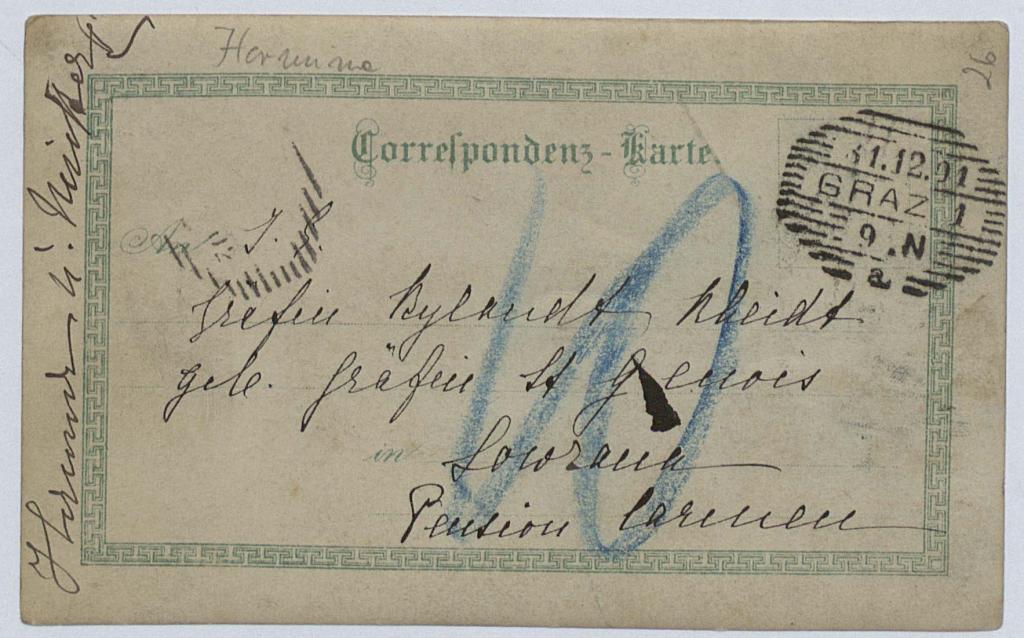 Hermine
26
Correspondenz-Karte.
31.12.91
GRAZ 1
9.N
a
An I. H.
Gräfin Bylandt Rheidt
geb. Gräfin St Genois
in Lovrana
Pension Carmen
10